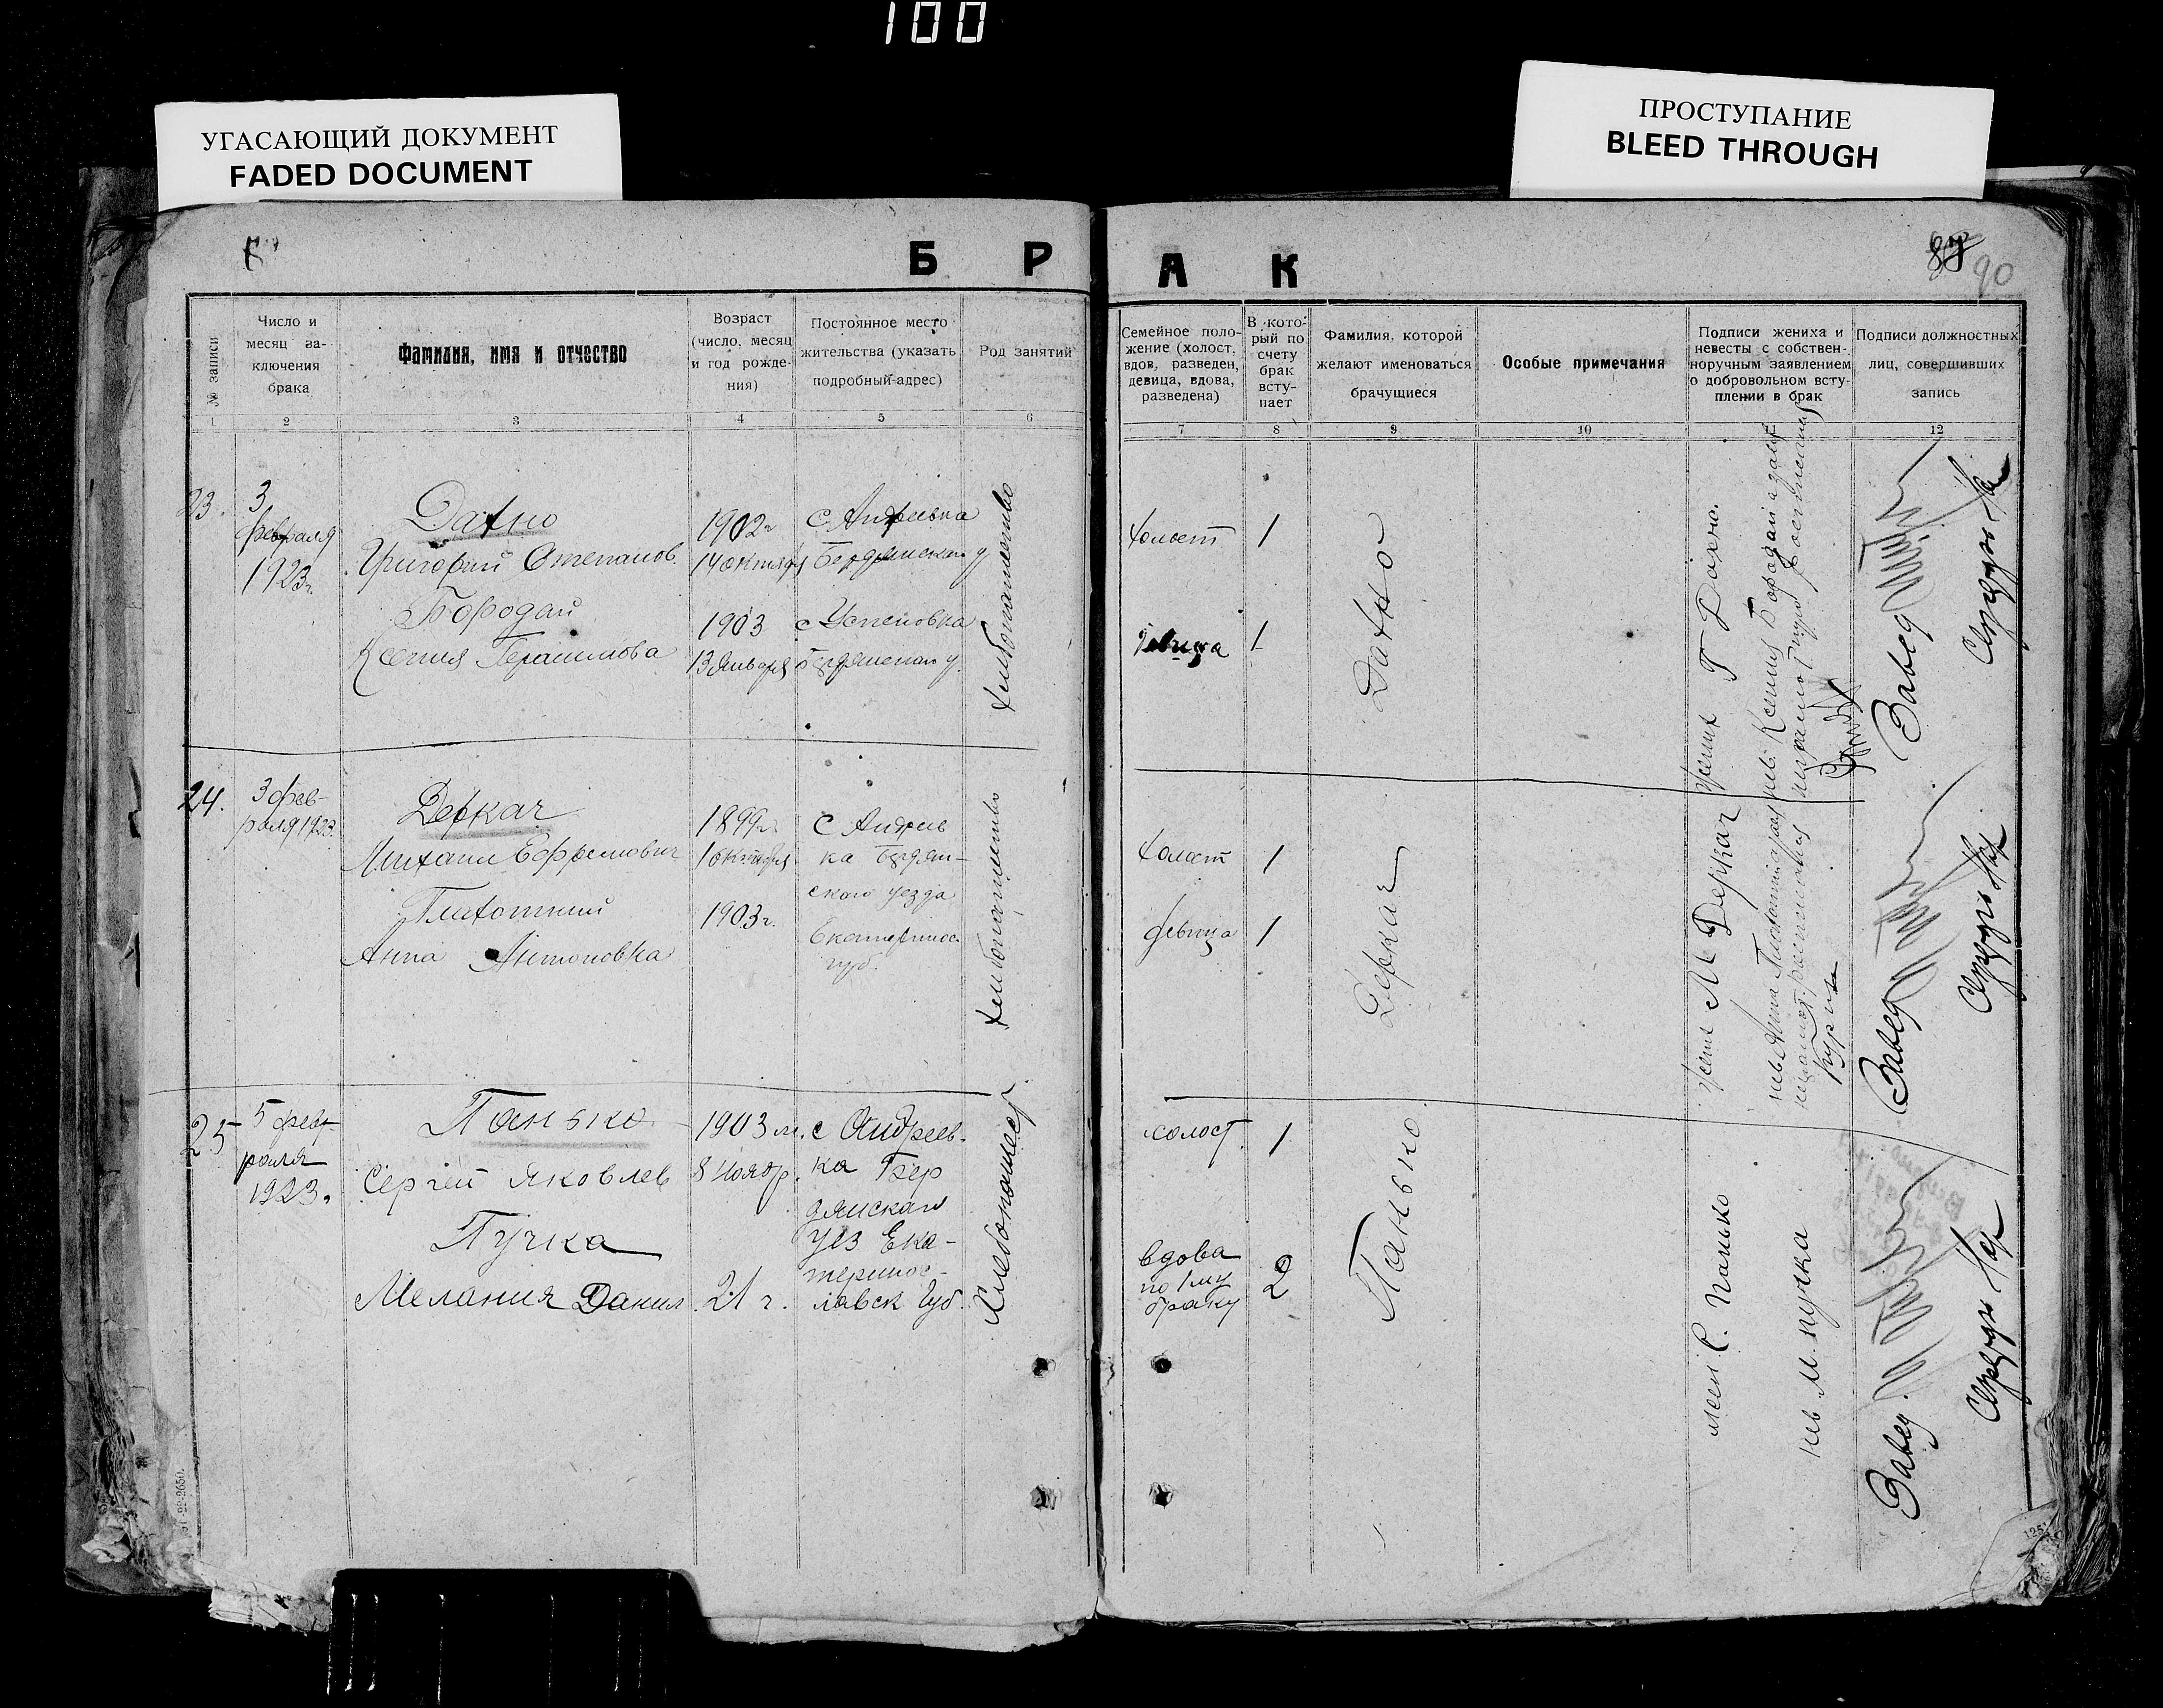 100
УГАСАЮЩИЙ ДОКУМЕНТ
FADED DOCUMENT
ПРОСТУПАНИЕ
BLEED THROUGH
Б Р А К
87 90
№ записи
Число и
месяц за-
ключения
брака
Фамилия, имя и отчество
Возраст
(число, месяц
и год рожде-
ния)
Постоянное место
жительства (указать
подробный адрес)
Род занятий
Семейное поло-
жение (холост,
вдов, разведен,
девица, вдова,
разведена)
В кото-
рый по
счету
брак
всту-
пает
Фамилия, которой
желают именоваться
брачущиеся
Особые примечания
Подписи жениха и
невесты с собствен-
норучным заявлением
о добровольном всту-
плении в брак
Подписи должностных
лиц, совершивших
запись
1 2 3 4 5 6 7 8 9 10 11 12
23.
3
февраля
1923г
Дахно
Григорий Степанов.
Бородай
Ксения Герасимова
1902г
14 октября
1903
13 января
с Андреевка
Бердянского у
с Успеновка
Бердянского у.
хлебопашество
холост
девица
1
1
Дахно
жених Г Дахно.
нев. Ксения Бородай а за нее
неграмотную расписался
Завед
Секретарь
24.
3 фев-
раля 1923.
Деркач
Михаил Ефремович
Плахотний
Анна Антоновка
1899г
1 октября
1903г.
с Андреев
ка Бердян-
ского уезда
Екатеринос.
губ.
хлебопашество
холост
девица
1
1
Деркач
жених М Деркач
нев Анна Плахотний а за нее
неграмот расписался
Завед
Секретарь
25
5 фев-
раля
1923.
Панько
Сергей Яковлев
Пучка
Мелания Данил.
1903 г.
8 ноябр.
21 г.
с Андреев-
ка Бер
дянскаго
уез Ека-
теринос-
лавск Губ.
Хлебопашест
холост.
вдова
по 1 му
браку
1
2
Панько.
жен С. Панько
нев М. пучка
Завед.
Секретарь